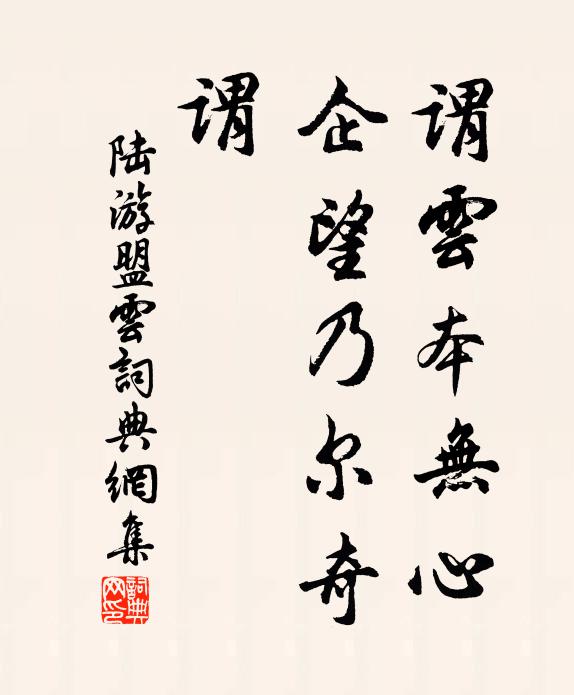 謂雲本無心
企望乃尔奇
謂
陆游盟雲詞典網集
詞典
网印